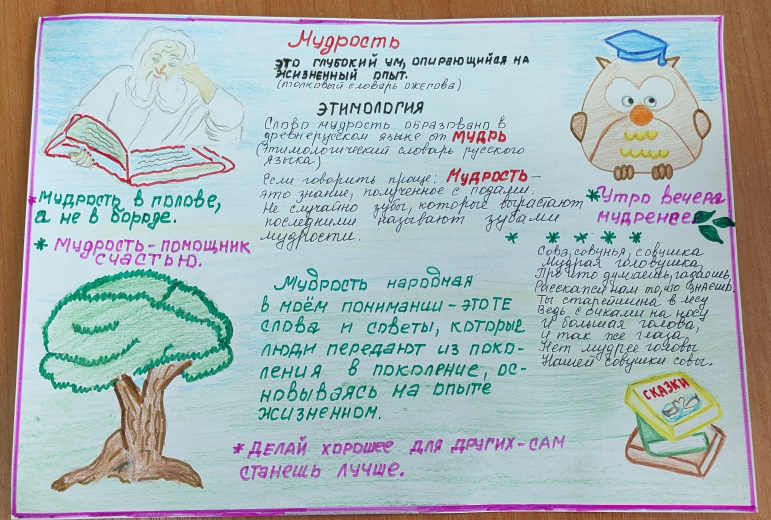 Мудрость
это глубокий ум, опирающийся на
жизненный опыт.
(толковый словарь ожегова)
ЭТИМОЛОГИЯ
Слово мудрость образовано в
древнерусском языке от МУДРЬ
(Этимологический словарь русского
языка)
Если говорить проще; Мудрость –
это знание, полученное с годами.
Не случайно зубы, которые вырастают
последними называют зубами
мудрости.
* Мудрость в голове,
а не в бороде.
* Мудрость - помощник
счастью.
* Утро вечера
мудренее.
* * * * *
Сова, совунья, совушка
Мудрая головушка
Про что думаешь, гадаешь,
Расскажи нам то, что знаешь.
Ты старейшина в лесу
Ведь с очками на носу
И большая голова,
И так же глаза,
Нет мудрее головы
Нашей совушки совы.
Мудрость народная
в моём понимании - это те
слова и советы, которые
люди передают из поко-
ления в поколение, ос-
новываясь на опыте
жизненном.
* ДЕЛАЙ ХОРОШЕЕ ДЛЯ ДРУГИХ - САМ
СТАНЕШЬ ЛУЧШЕ.
СКАЗКИ